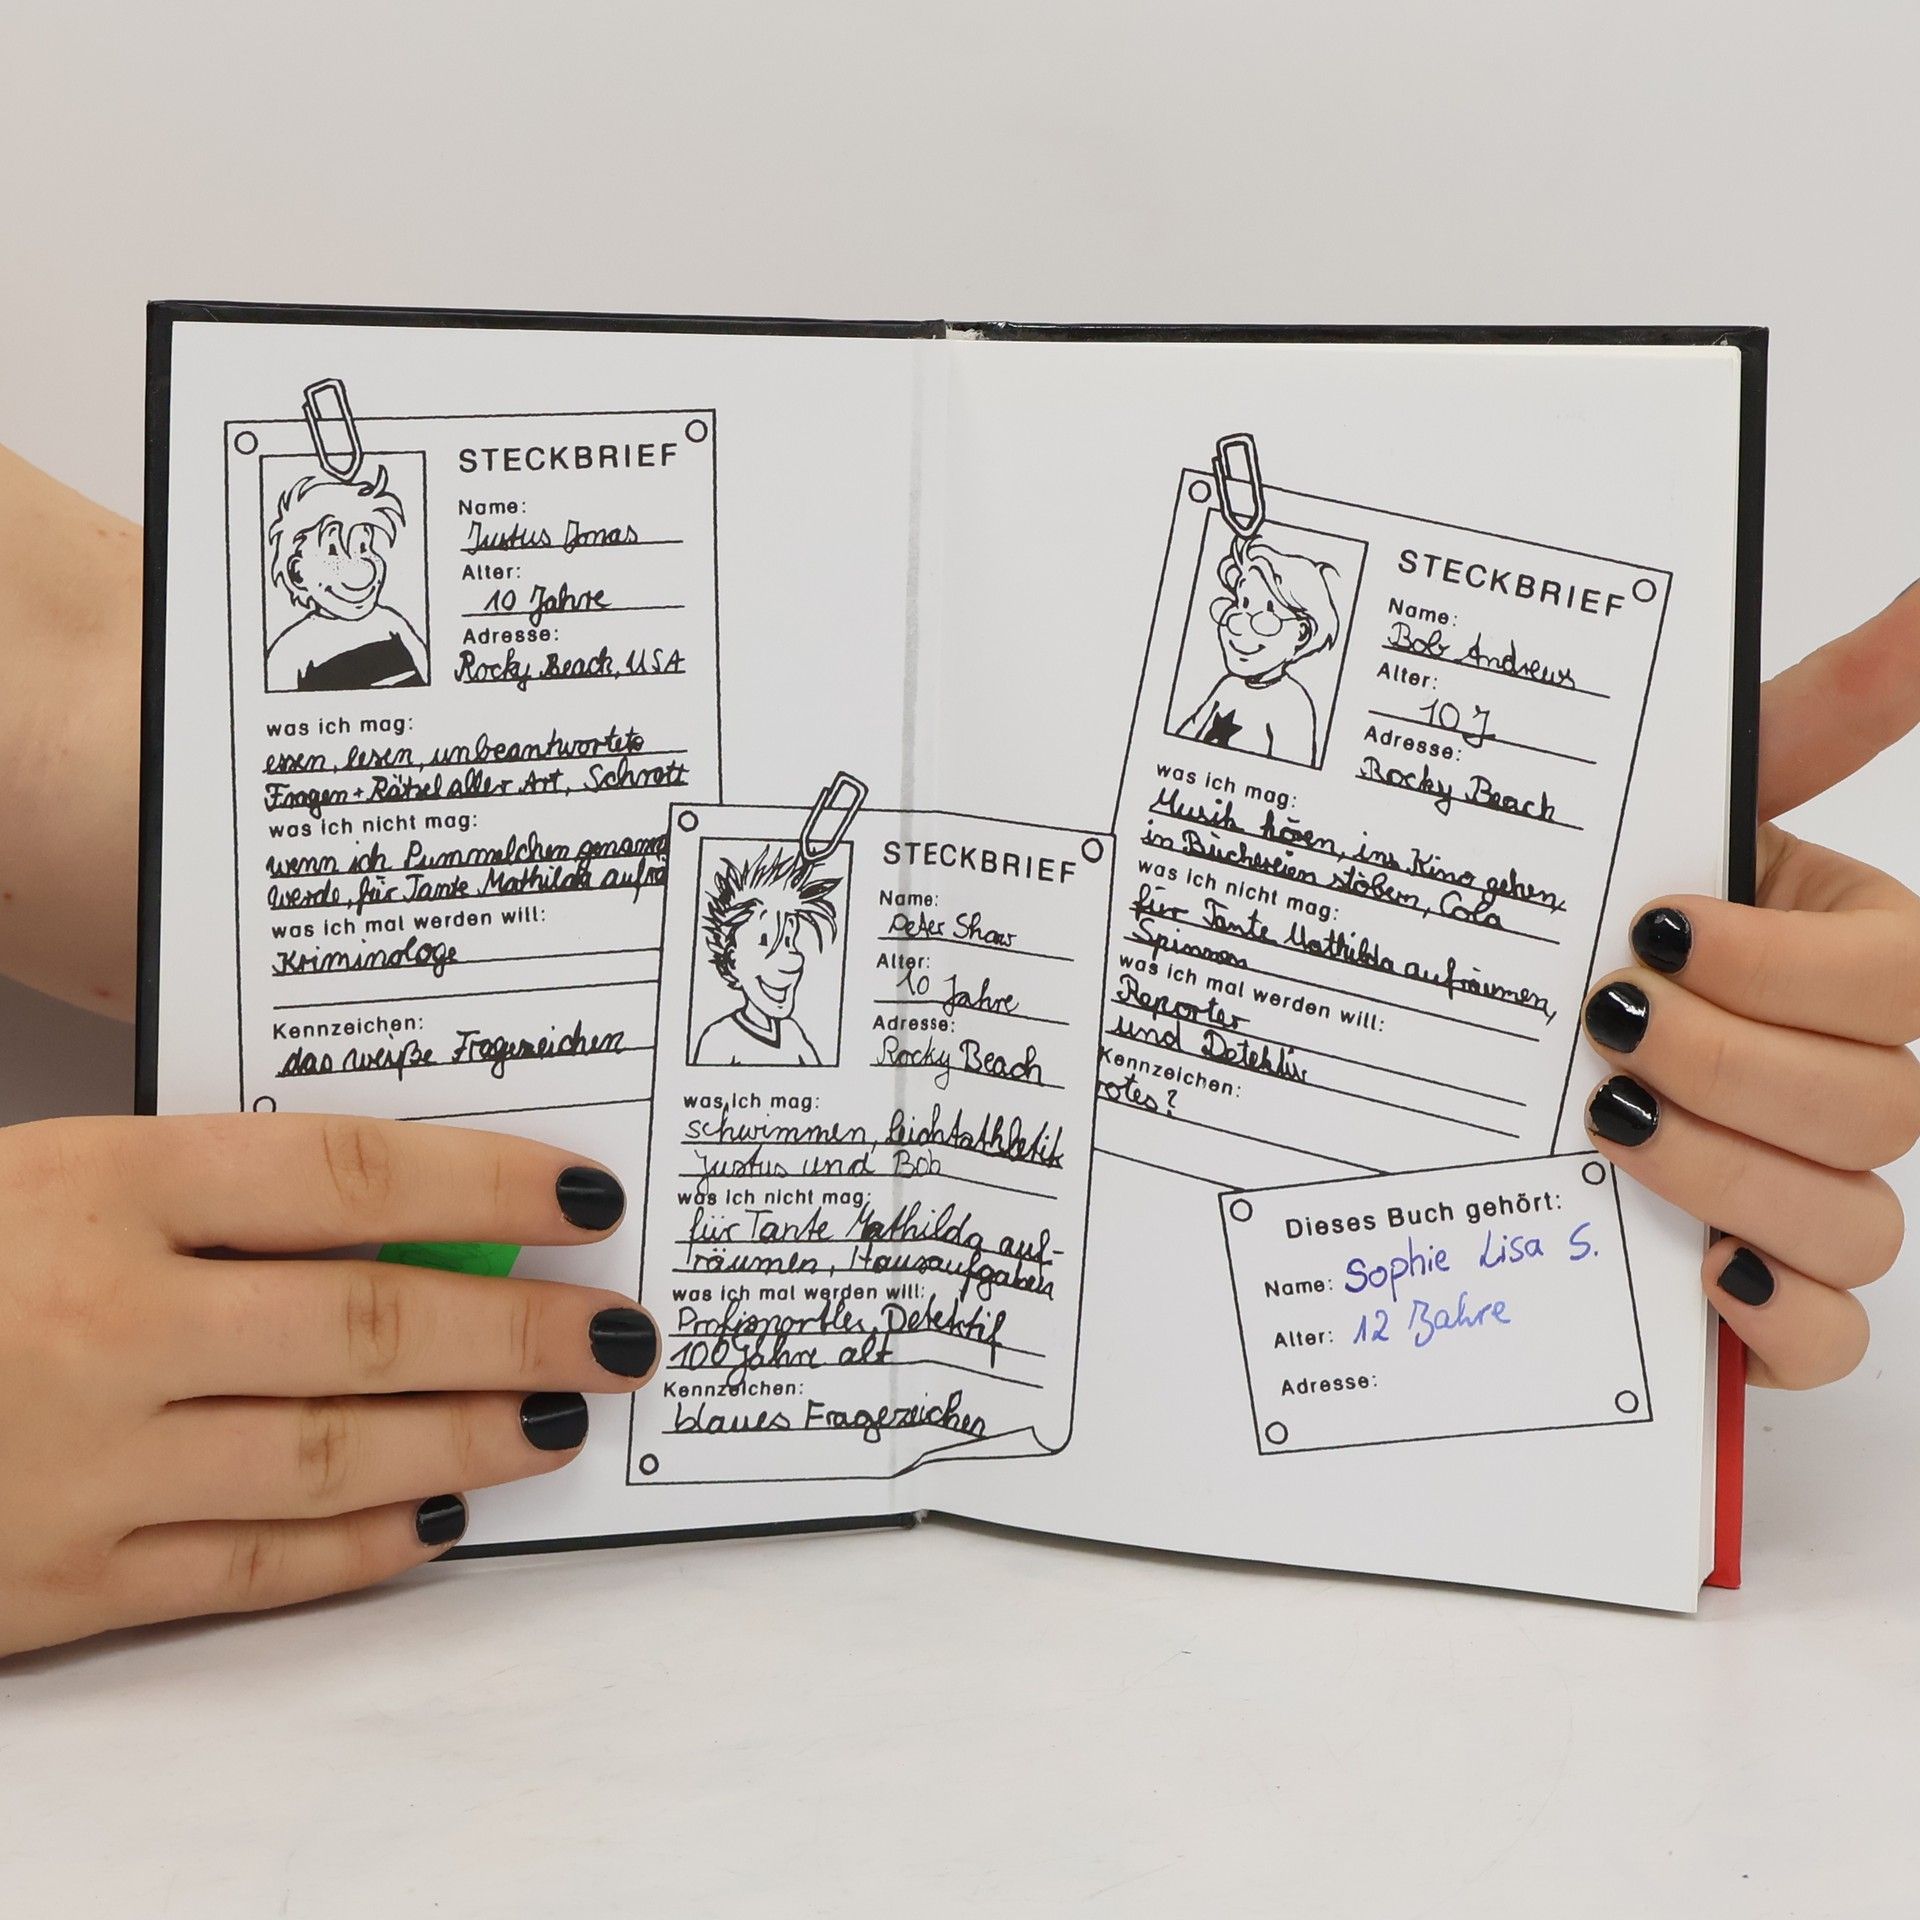 STECKBRIEF
Name:
Justus Jonas
Alter:
10 Jahre
Adresse:
Rocky Beach, USA
was ich mag:
essen, lesen, unbeantwortete
Fragen + Rätsel aller Art, Schrott
was ich nicht mag:
wenn ich Pummelchen genannt
werde, für Tante Mathilda aufrä
was ich mal werden will:
Kriminologe
Kennzeichen:
das weiße Fragezeichen
STECKBRIEF
Name:
Peter Shaw
Alter:
10 Jahre
Adresse:
Rocky Beach
was ich mag:
schwimmen, Leichtathletik
Justus und Bob
was ich nicht mag:
für Tante Mathilda auf-
räumen, Hausaufgaben
was ich mal werden will:
Profisportler, Detektif
100 Jahre alt
Kennzeichen:
blaues Fragezeichen
STECKBRIEF
Name:
Bob Andrews
Alter:
10 J
Adresse:
Rocky Beach
was ich mag:
Musik hören, ins Kino gehen,
in Büchereien stöbern, Cola
was ich nicht mag:
für Tante Mathilda aufräumen,
Spinnen
was ich mal werden will:
Reporter
und Detektiv
Kennzeichen:
rotes?
Dieses Buch gehört:
Name: Sophie Lisa S.
Alter: 12 Jahre
Adresse: